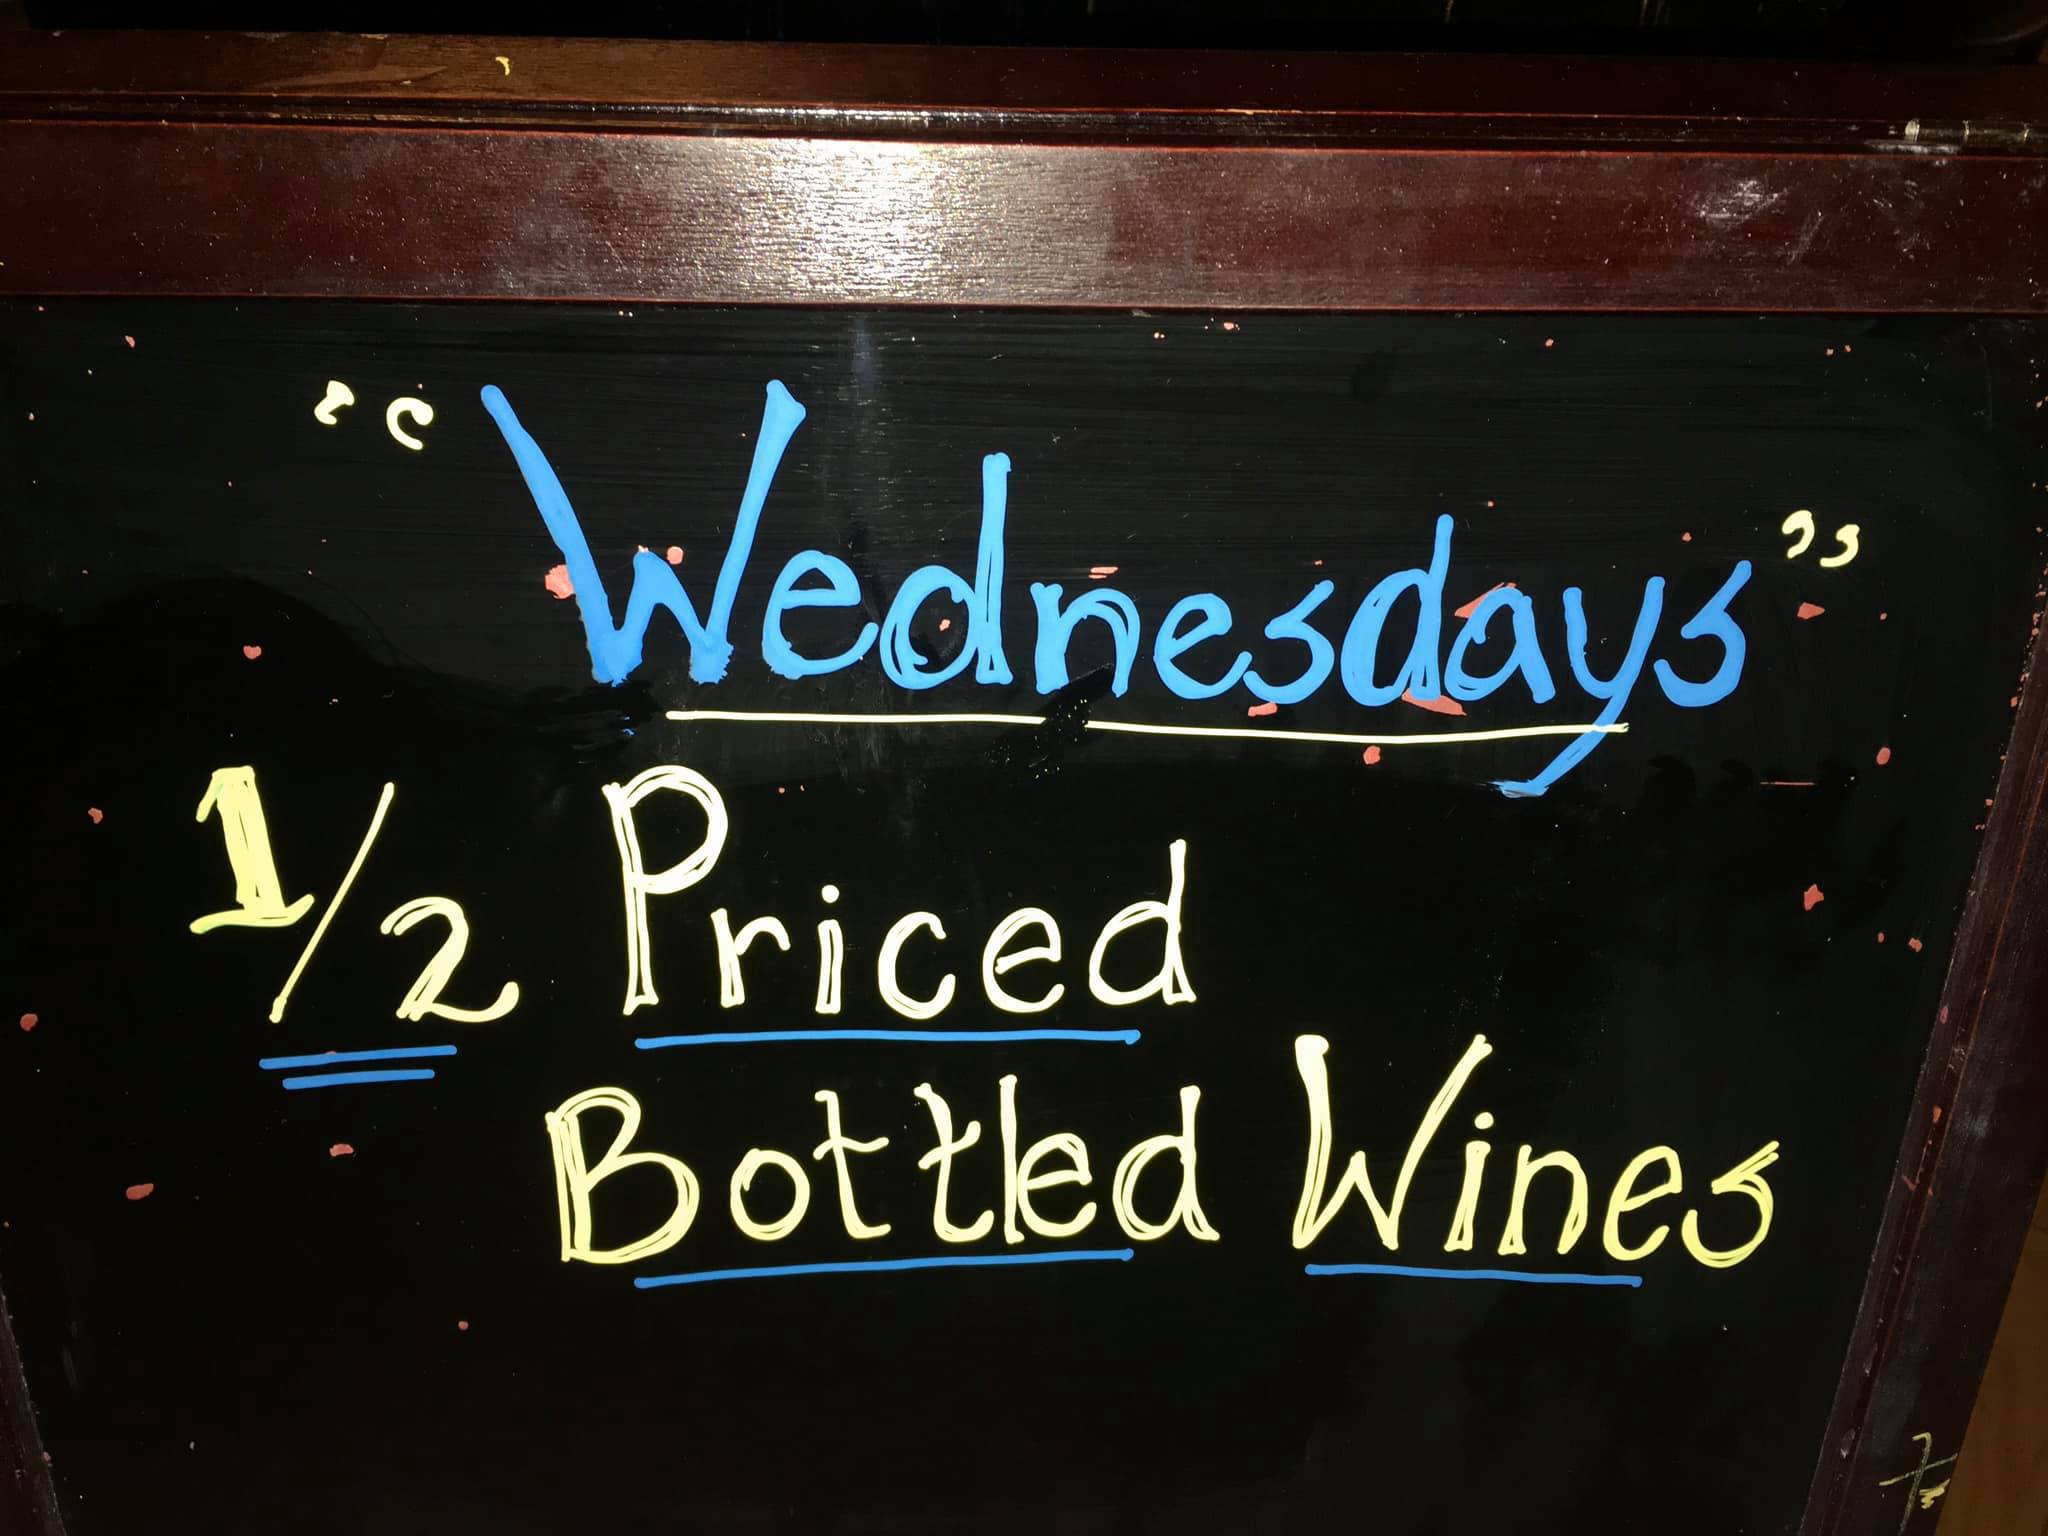 "Wednesdays"
1/2 Priced
Bottled Wines